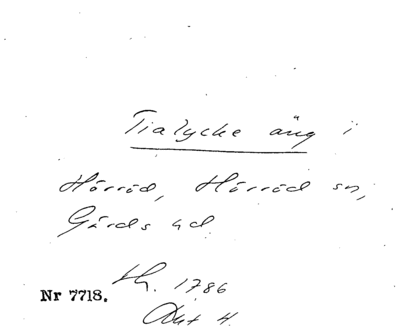 Tialycke äng i
Hörröd, Hörröd sn,
Gärds hd
Nr 7718. th. 1786
Akt 4.